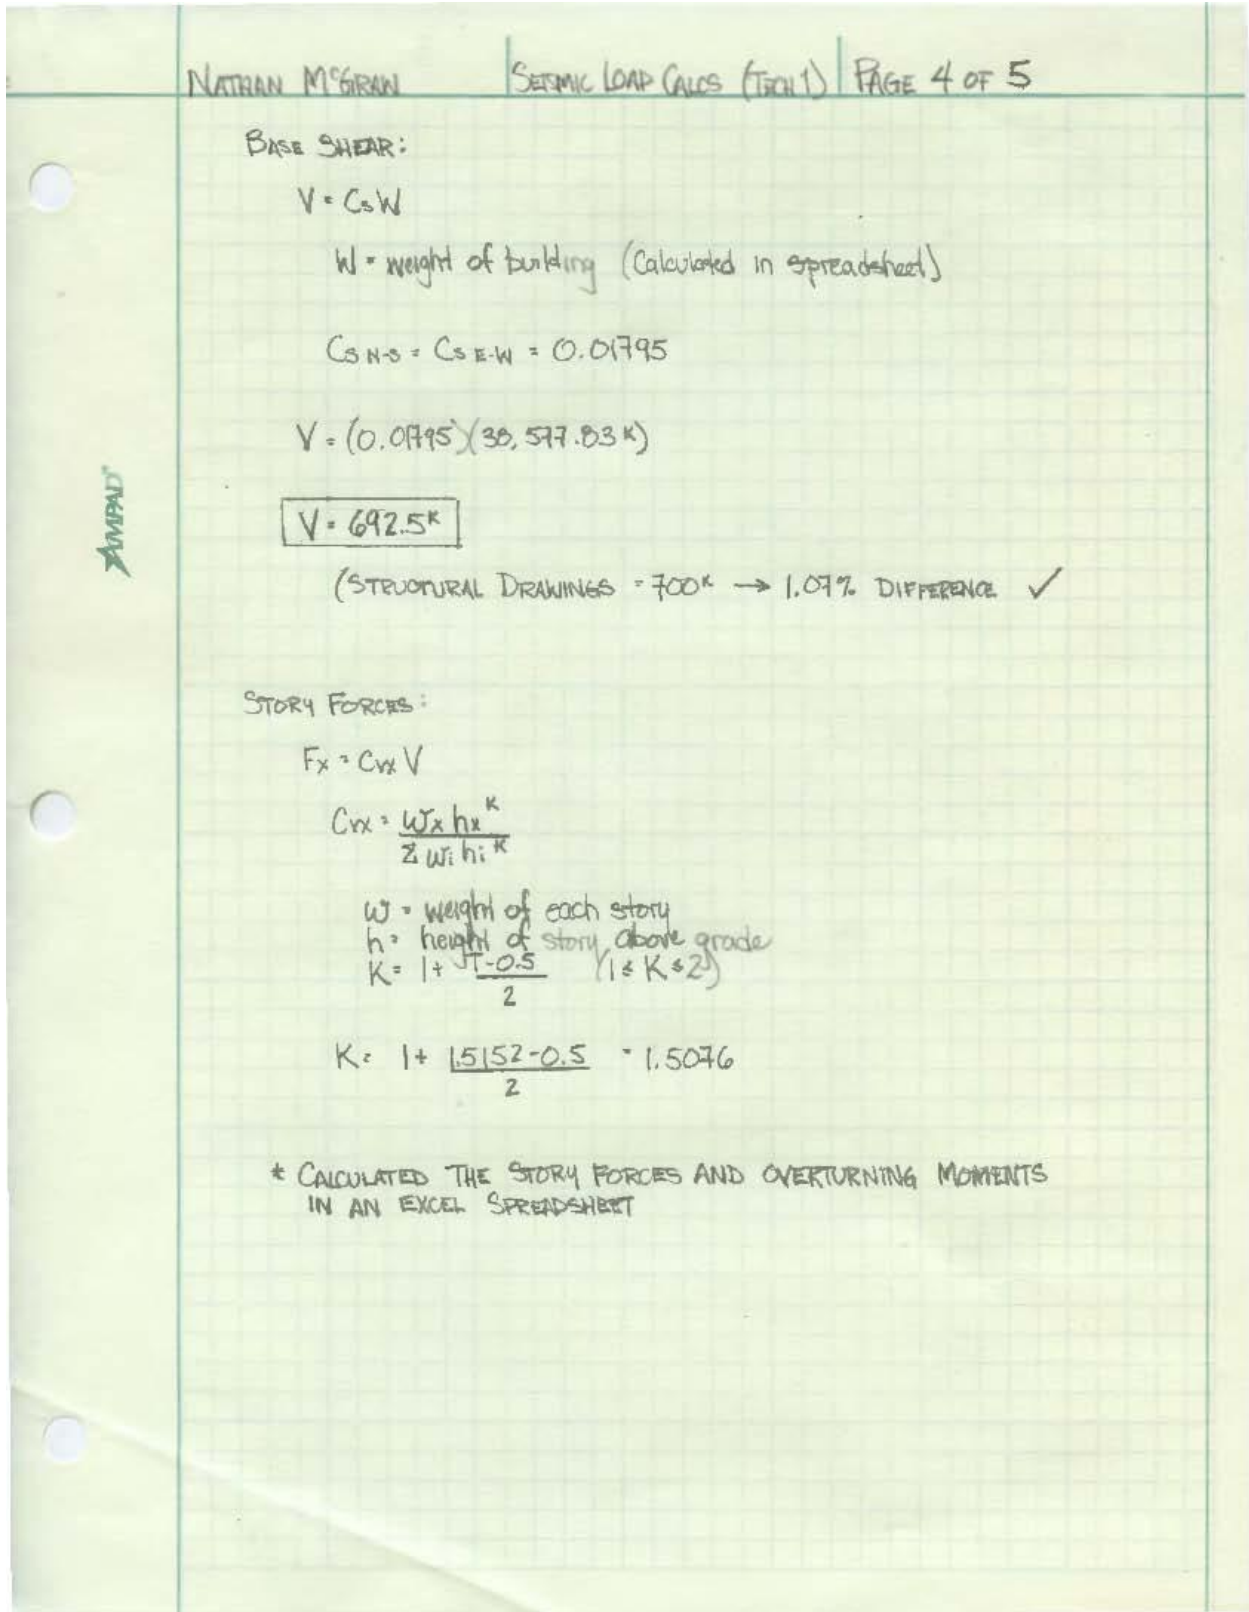 NATHAN McGRAW SEISMIC LOAD CALCS (TECH 1) PAGE 4 OF 5
BASE SHEAR:
V = CsW
W = weight of building (Calculated in spreadsheet)
Cs N-S = Cs E-W = 0.01795
V = (0.01795)(38,577.83 K)
AMPAD
V = 692.5 K
(STRUCTURAL DRAWINGS = 700 K → 1.07% DIFFERENCE ✓
STORY FORCES:
Fx = Cvx V
Cvx = wx hx^K
Σ wi hi^K
w = weight of each story
h = height of story above grade
K = 1 + T-0.5 (1 ≤ K ≤ 2)
2
K = 1 + 1.5152-0.5 = 1.5076
2
* CALCULATED THE STORY FORCES AND OVERTURNING MOMENTS
IN AN EXCEL SPREADSHEET